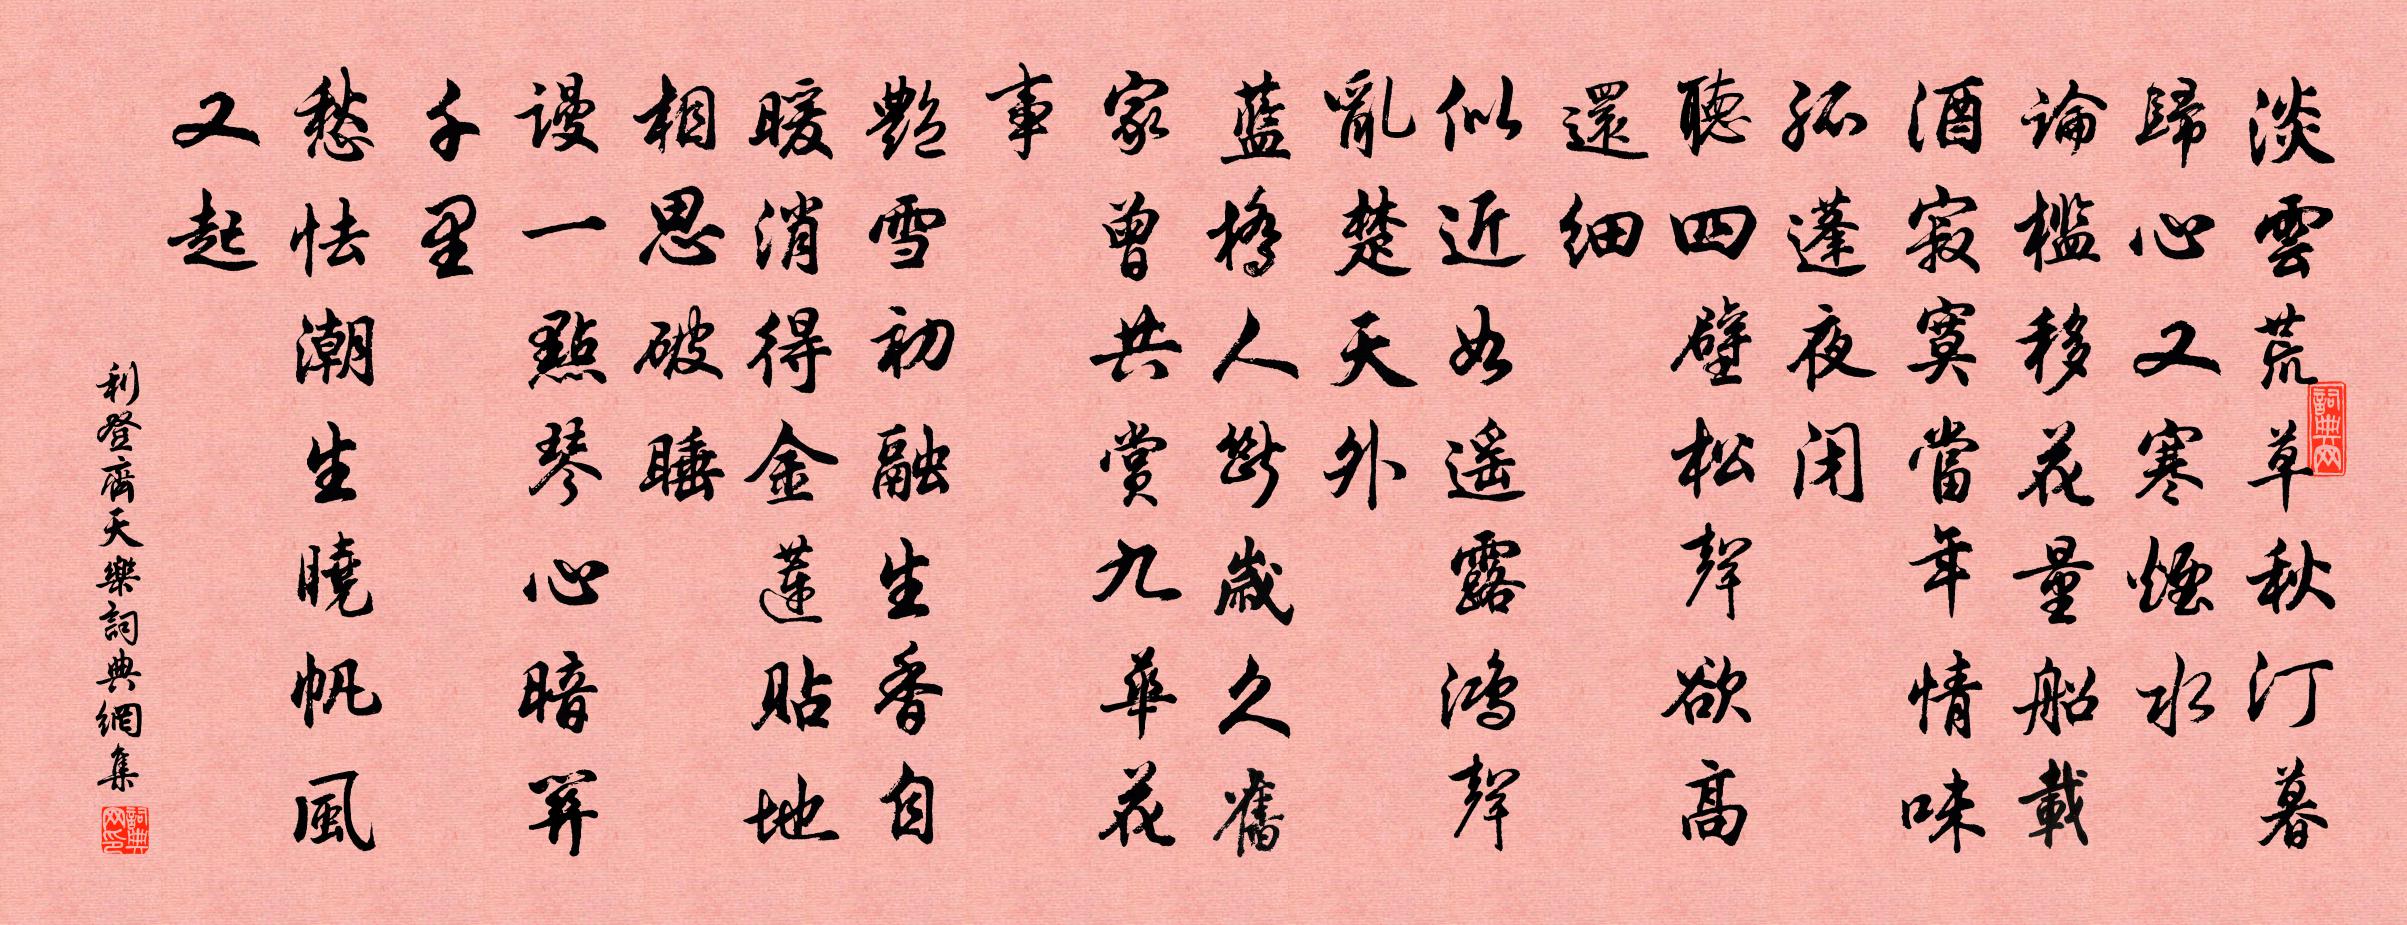 淡雲荒草秋汀暮
歸心又寒煙水
論檻移花量船載
酒寂寞當年情味
孤蓬夜闭
聽四壁松聲欲高
還細
似近如遥露鴻聲
亂楚天外
藍橋人斷歲久舊
家曾共賞九華花
事
艷雪初融生香自
暖消得金蓮貼地
相思破睡
謾一點琴心暗算
千里
愁怯潮生曉帆風
又起
利登齊天樂詞典網集
詞典网
詞典网印